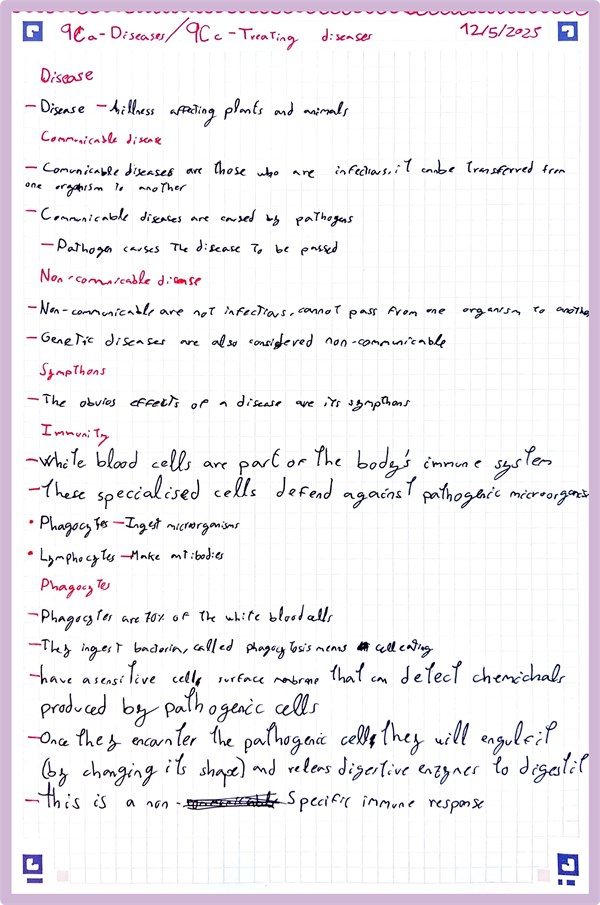 9Ca-Diseases/9Cc-Treating diseases 12/5/2025
Disease
- Disease - illness affecting plants and animals
Communicable disease
- Comunicable diseases are those who are infectious, it can be transferred from
one organism to another
- Communicable diseases are caused by pathogens
- Pathogen causes the disease to be passed
Non-comunicable disease
- Non-communicable are not infectious, cannot pass from one organism to another
- Genetic diseases are also considered non-communicable
Sympthons
- The obvios effects of a disease are its sympthons
Immunity
- White blood cells are part of the body's immune system
- These specialised cells defend against pathogenic microorganisms
• Phagocytes - Ingest microorganisms
• Lymphocytes - Make antibodies
Phagocytes
- Phagocytes are 70% of the white blood cells
- They ingest bacteria, called phagocytosis means cell eating
- have a sensitive cell surface membrane that can detect chemichals
produced by pathogenic cells
- Once they encounter the pathogenic cells, they will engulf it
(by changing its shape) and releas digestive enzymes to digest it
- this is a non- specific immune response